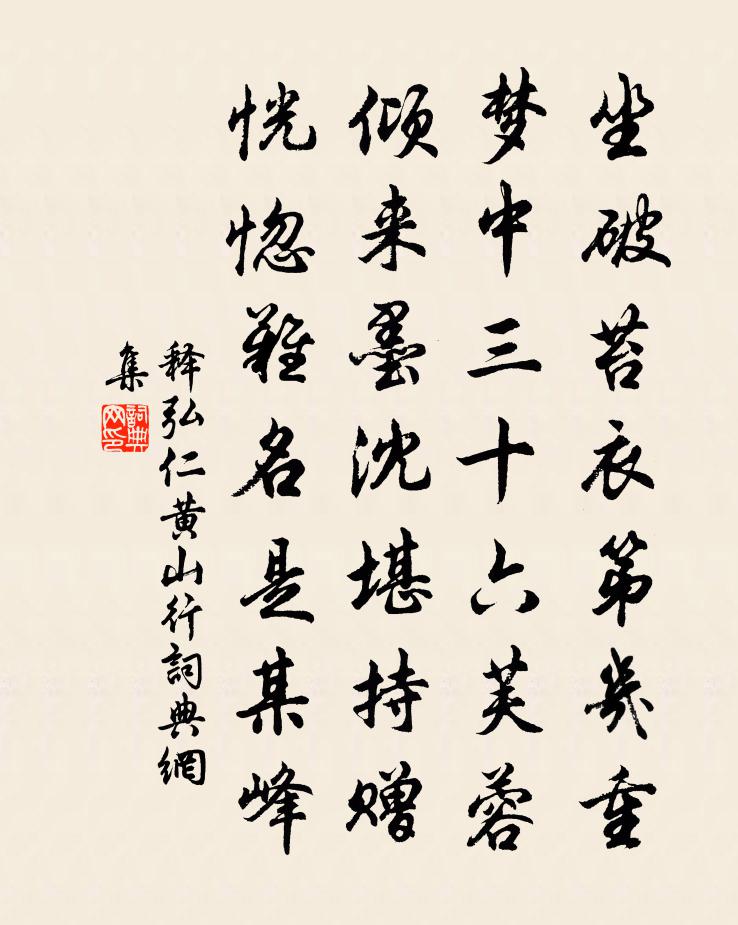 坐破苔衣第幾重
梦中三十六芙蓉
倾来墨沈堪持赠
恍惚難名是某峰
释弘仁黄山行詞典網
集
詞典
网印